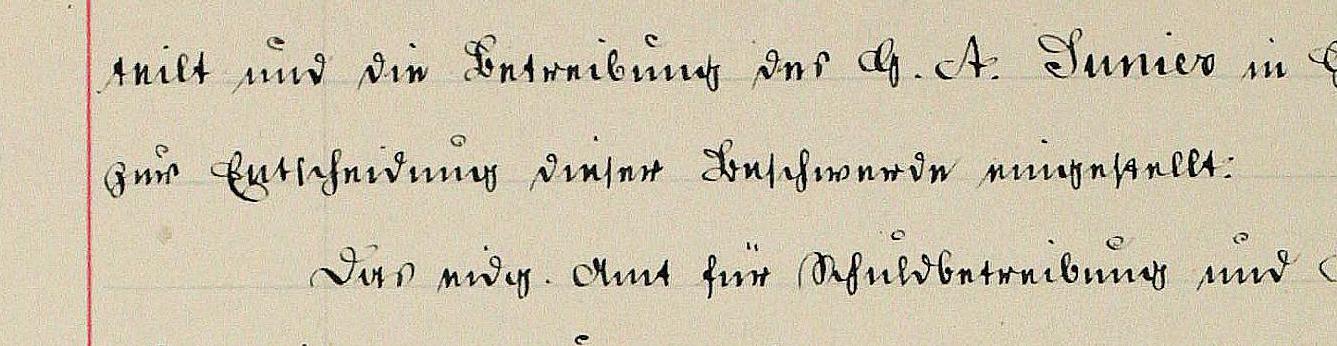 teilt und die Betreibung des G. A. Junier in
zur Entscheidung dieser Beschwerde eingestellt:
Das eidg. Amt für Schuldbetreibung und